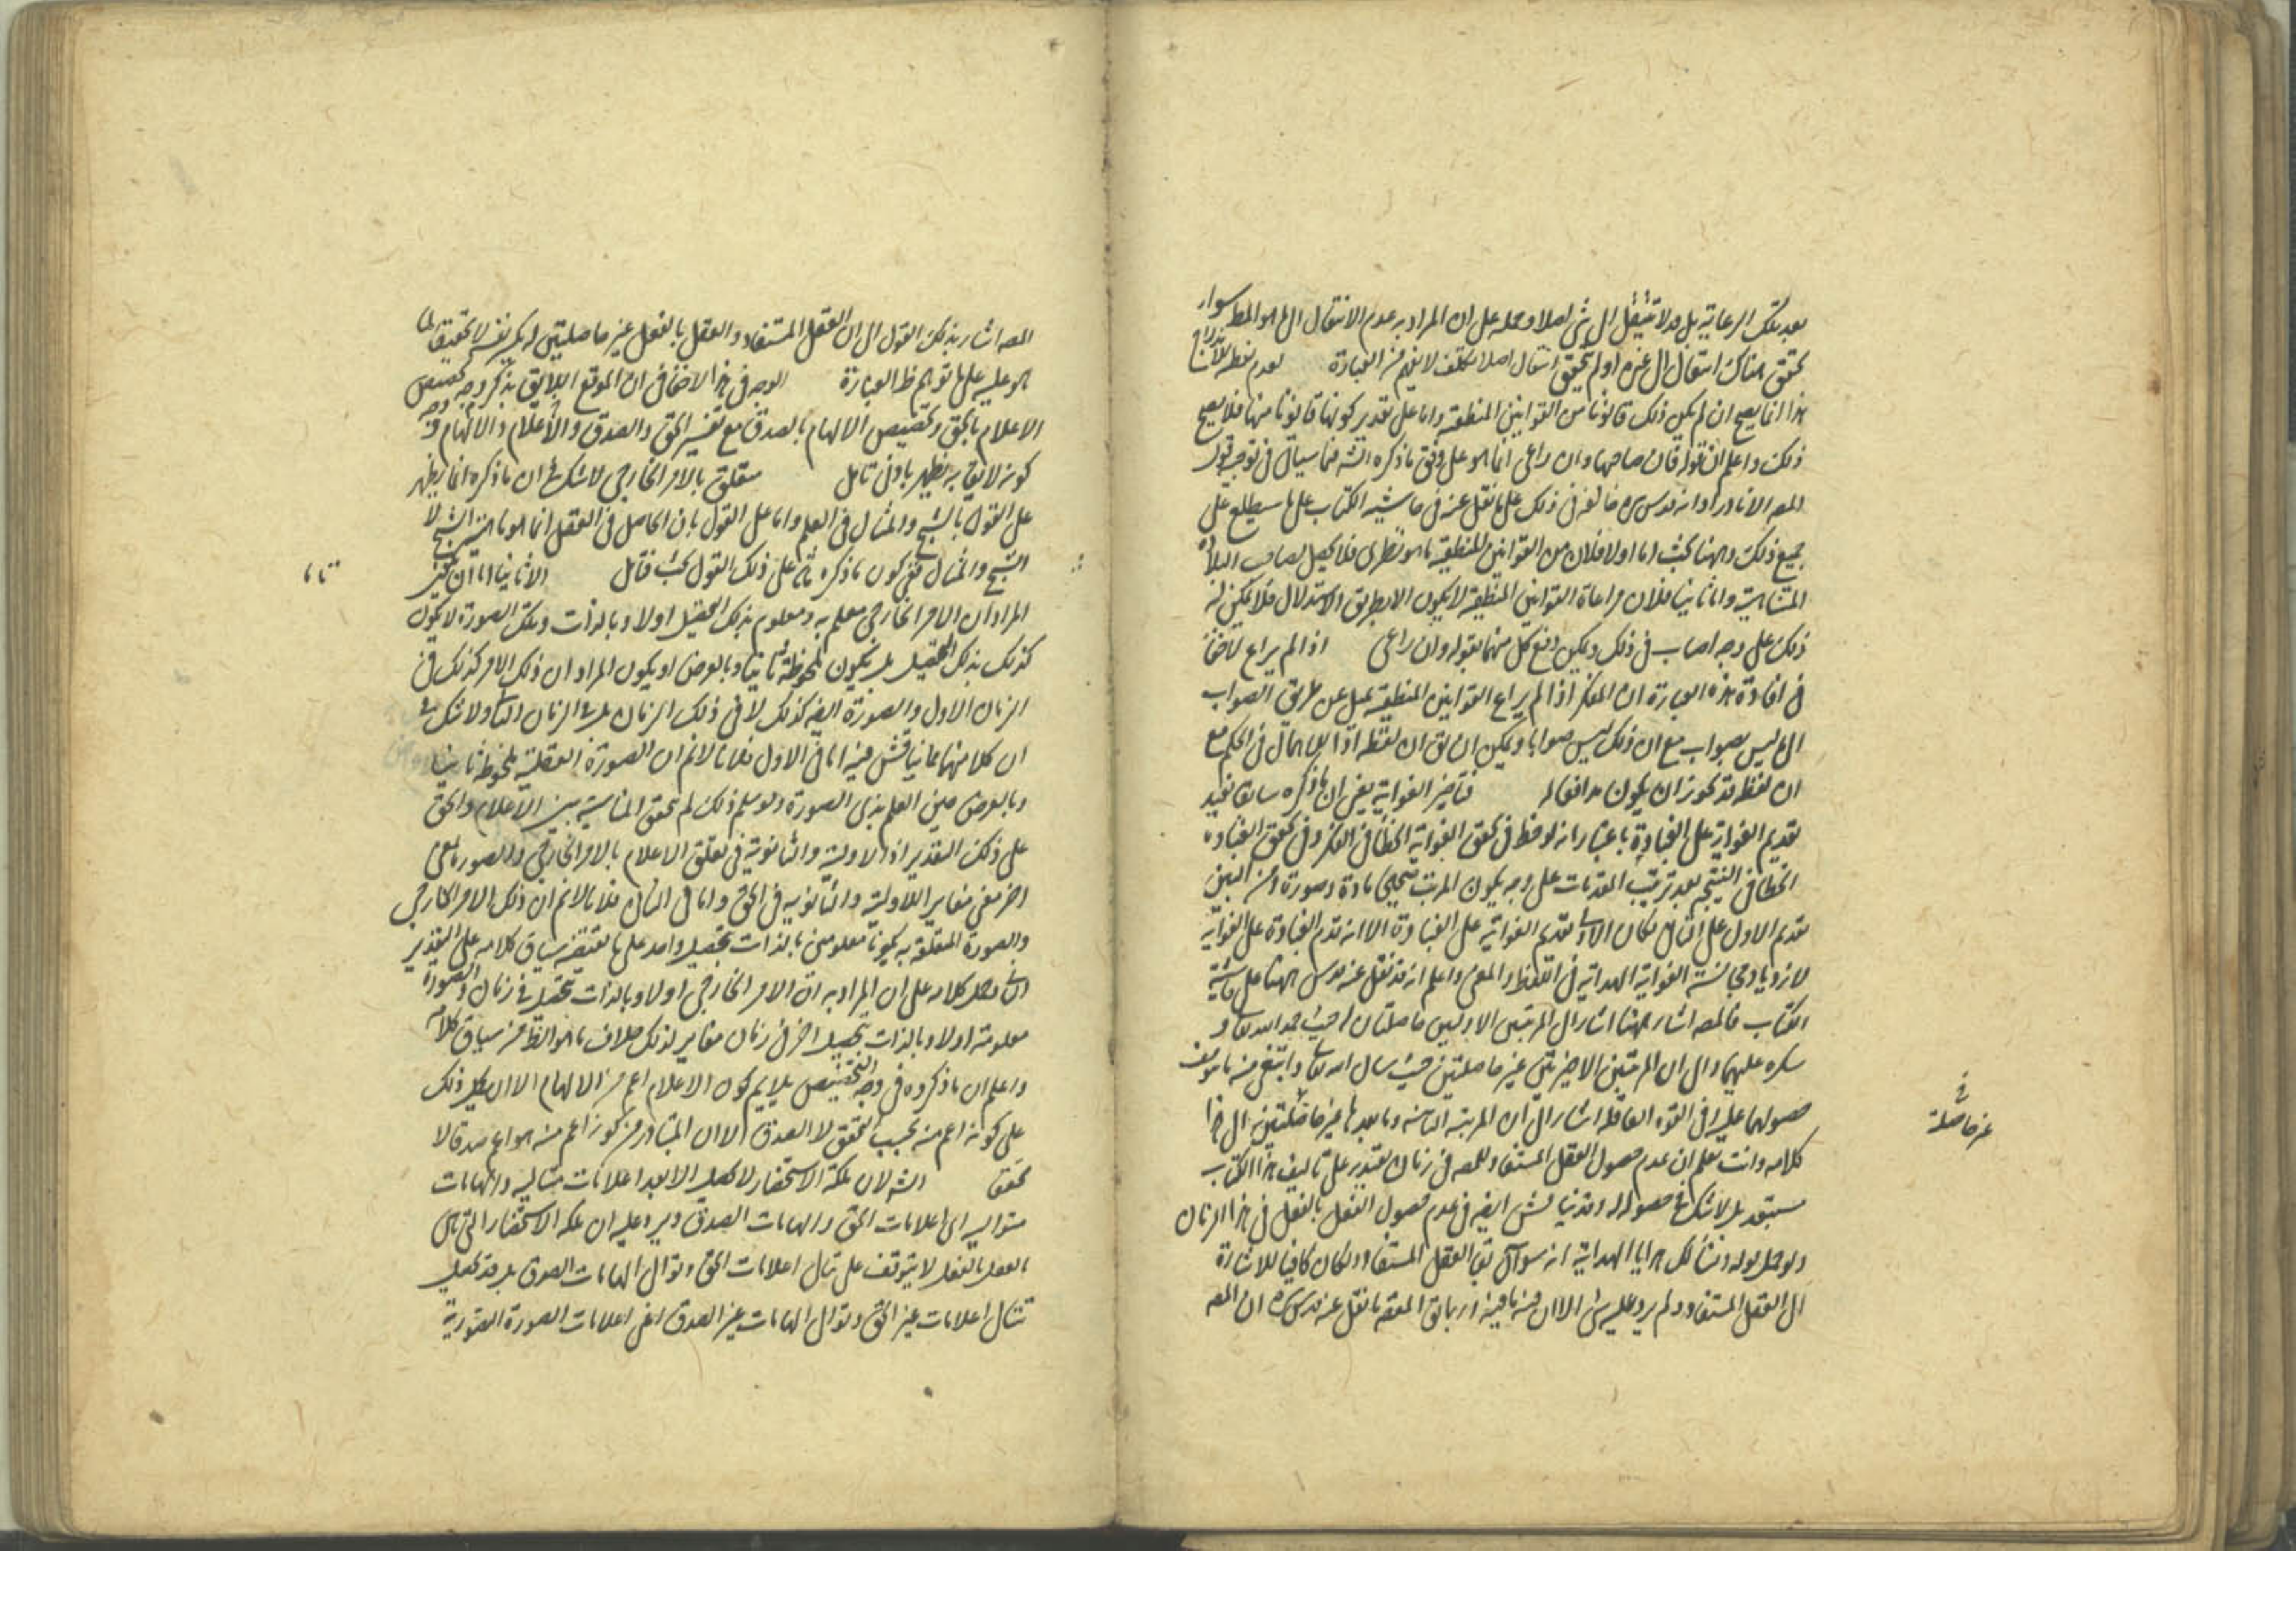 بعد تلك الرعاية بل قد لا ينتقل الى شئ اصلا وحمله على ان المراد به عدم الانتقال الى ما هو المط سواء
تحقق هناك انتقال الى غيره او لم يتحقق انتقال اصلا تكلف لا يفهم من العبارة لعدم
هذا انما يصح ان لم يكن ذلك قانونا من القوانين المنطقية واما على تقدير كونها قانونا منها فلا يصح
ذلك واعلم ان قوله فان صاحبها وان راعى انما هو على وفق ما ذكره الشه فيما سيأتى فى توجيه قول
المصـ الا نادرا وانه قدس سره خالفه فى ذلك على ما نقل عنه فى حاشية الكتاب على ما سيطلع على
جميع ذلك وههنا بحث اما اولا فلان من القوانين المنطقية ما هو نظرى فلا يحصل لصاحب البلاهة
المتناهية واما ثانيا فلان مراعاة القوانين المنطقية لا يكون الا بطريق الاستدلال فلا يمكن له
ذلك على وجه اصاب فى ذلك ويمكن دفع كل منهما بقوله وان راعى اذا لم يراع لا خفاء
فى افادة هذه العبارة ان المفكر اذا لم يراع القوانين المنطقية يميل عن طريق الصواب
الى ما ليس بصواب مع ان ذلك ليس صوابا ويمكن ان يق ان لفظه اذا للاهمال فى الحكم مع
ان لفظ قد يجوز ان يكون مرافقا له فتأخير الغواية يعنى ان ما ذكره سابقا يفيد
تقديم الغواية على الغباوة باعتبار انه لوحظ فى تحقق الغواية الخطأ فى الفكر وفى تحقق الغباوة
الخطأ فى النتيجة بعد ترتيب المقدمات على وجه يكون المرتب صحيحا مادة وصورة ومن البين
تقدم الاول على الثانى فكان الاولى تقديم الغواية على الغباوة الا انه قدم الغباوة على الغواية
لازدياد مجانسة الغواية الهداية فى اللفظ والمعنى واعلم انه قد نقل عنه قدس سره ههنا على حاشية
الكتاب فالمصـ اشار ههنا اشار الى المرتبتين الاوليين حاصلتان له حيث حمد الله تعالى و
شكره عليهما والى ان المرتبتين الاخيرتين غير حاصلتين حيث سال الله تعالى وابتغى منه ما يتوقف
حصولهما عليه فى القوة العاقلة اشار الى ان المرتبة الثانية وما بعدها غير حاصلتين الى هذا
غير حاصلة
كلامه وانت تعلم ان عدم حصول العقل المستفاد للمصـ فى زمان يقتدر على تاليف هذا الكتاب
مستبعد بل لا شك فى حصوله له وقد يناقش ايضا فى عدم حصول العقل بالفعل فى هذا الزمان
ولو حمل قوله ونسألك هدايا الهداية انه سوال بقاء العقل المستفاد ولكان كافيا للاشارة
الى العقل المستفاد ولم يرد عليه شئ الا ان فيه ما فيه ان يق المفهوم مما نقل عنه قدس سره ان المصـ
المصـ اشار بذلك القول الى ان العقل المستفاد والعقل بالفعل غير حاصلتين له
هو عليه على ما توهم ظ العبارة الوجه فى هذا لا خفاء فى ان الموقع اللايق بذكر وجه تخصيص
الاعلام بالحق وتخصيص الالهام بالصدق مع تفسير الحق والصدق والاعلام والالهام وجه
كونه لايقا به يظهر بادنى تامل متعلق بالامر الخارجى لا شك فى ان ما ذكره انما يظهر
على القول بالشبح والمثال فى العلم واما على القول بان الحاصل فى العقل انما هو ماهية الشئ لا
الشبح والمثال ففى كون ما ذكره ثمه على ذلك القول بحث فتامل الا ثانيا اما ان يكون
المراد ان الامر الخارجى معلم به ومعلوم بذلك التحصيل اولا وبالذات وتلك الصورة لا تكون
كذلك بذلك التحصيل بل تكون ملحوظة ثانيا وبالعرض او يكون المراد ان ذلك الامر كذلك فى
الزمان الاول والصورة ايضا كذلك لا فى ذلك الزمان بل فى الزمان الثانى ولا شك فى
ان كلا منهما مما يناقش فيه اما فى الاول فلانا لا نم ان الصورة العقلية ملحوظة ثانيا
وبالعرض حين العلم بذى الصورة ولو سلم ذلك لم تحقق المناسبة بين الاعلام والحق
على ذلك التقدير اذ الاولية والثانوية فى تعلق الاعلام بالامر الخارجى والصورة معنى
اخر معنى مغاير للاولية والثانوية فى الحق واما فى الثانى فلانا لا نم ان ذلك الامر الخارجى
والصورة المتعلقة به يكونا معلومين بالذات بتحصيل واحد على ما يقتضيه سياق كلامه على التقدير
الثانى وحمل كلامه على ان المراد به ان الامر الخارجى اولا وبالذات بتحصيل فى زمان والصورة
معلومة اولا وبالذات بتحصيل اخر فى زمان مغاير لذلك خلاف ما هو الظ من سياق كلامه
واعلم ان ما ذكروه فى وجه التخصيص يلايم كون الاعلام اعم من الالهام الا ان يحمل ذلك
على كونه اعم منه بحسب التحقق لا الصدق الا ان المتبادر من كونه اعم منه هو اعم صدقا لا
تحققا الشه لان ملكة الاستحضار لا تحصل الا بعد اعلامات متتالية والهامات
متوالية اى اعلامات الحق والهامات الصدق ويرد عليه ان ملكة الاستحضار التى هى
العقل بالفعل لا يتوقف على تتالى اعلامات الحق وتوالى الهامات الصدق بل قد تحصل
بتتالى اعلامات غير الحق وتوالى الهامات غير الصدق اعنى اعلامات الصورة التصورية